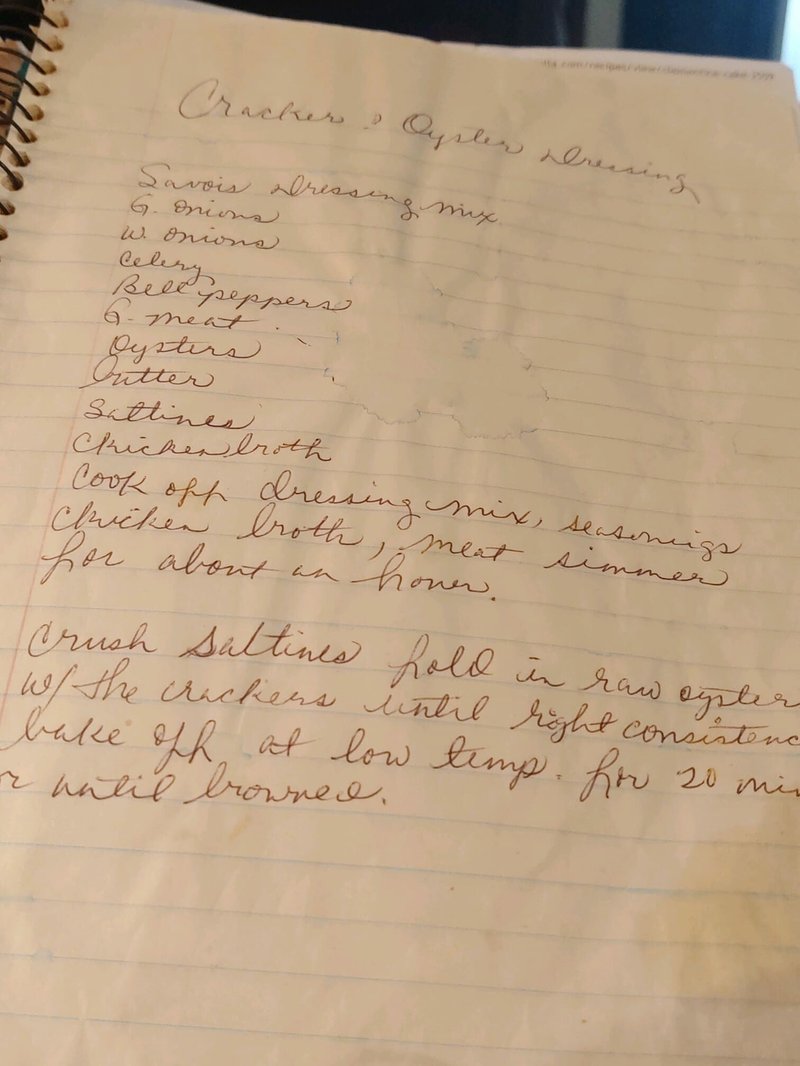 Cracker & Oyster Dressing
Savois Dressing mix
G. onions
W. onions
Celery
Bell peppers
G. meat
Oysters
butter
Saltines
Chicken broth
Cook off dressing mix, seasonings
Chicken broth, meat simmer
for about an hower.
Crush Saltines fold in raw oyster
w/ the crackers until right consistenc
bake off at low temp. for 20 min
or until browned.